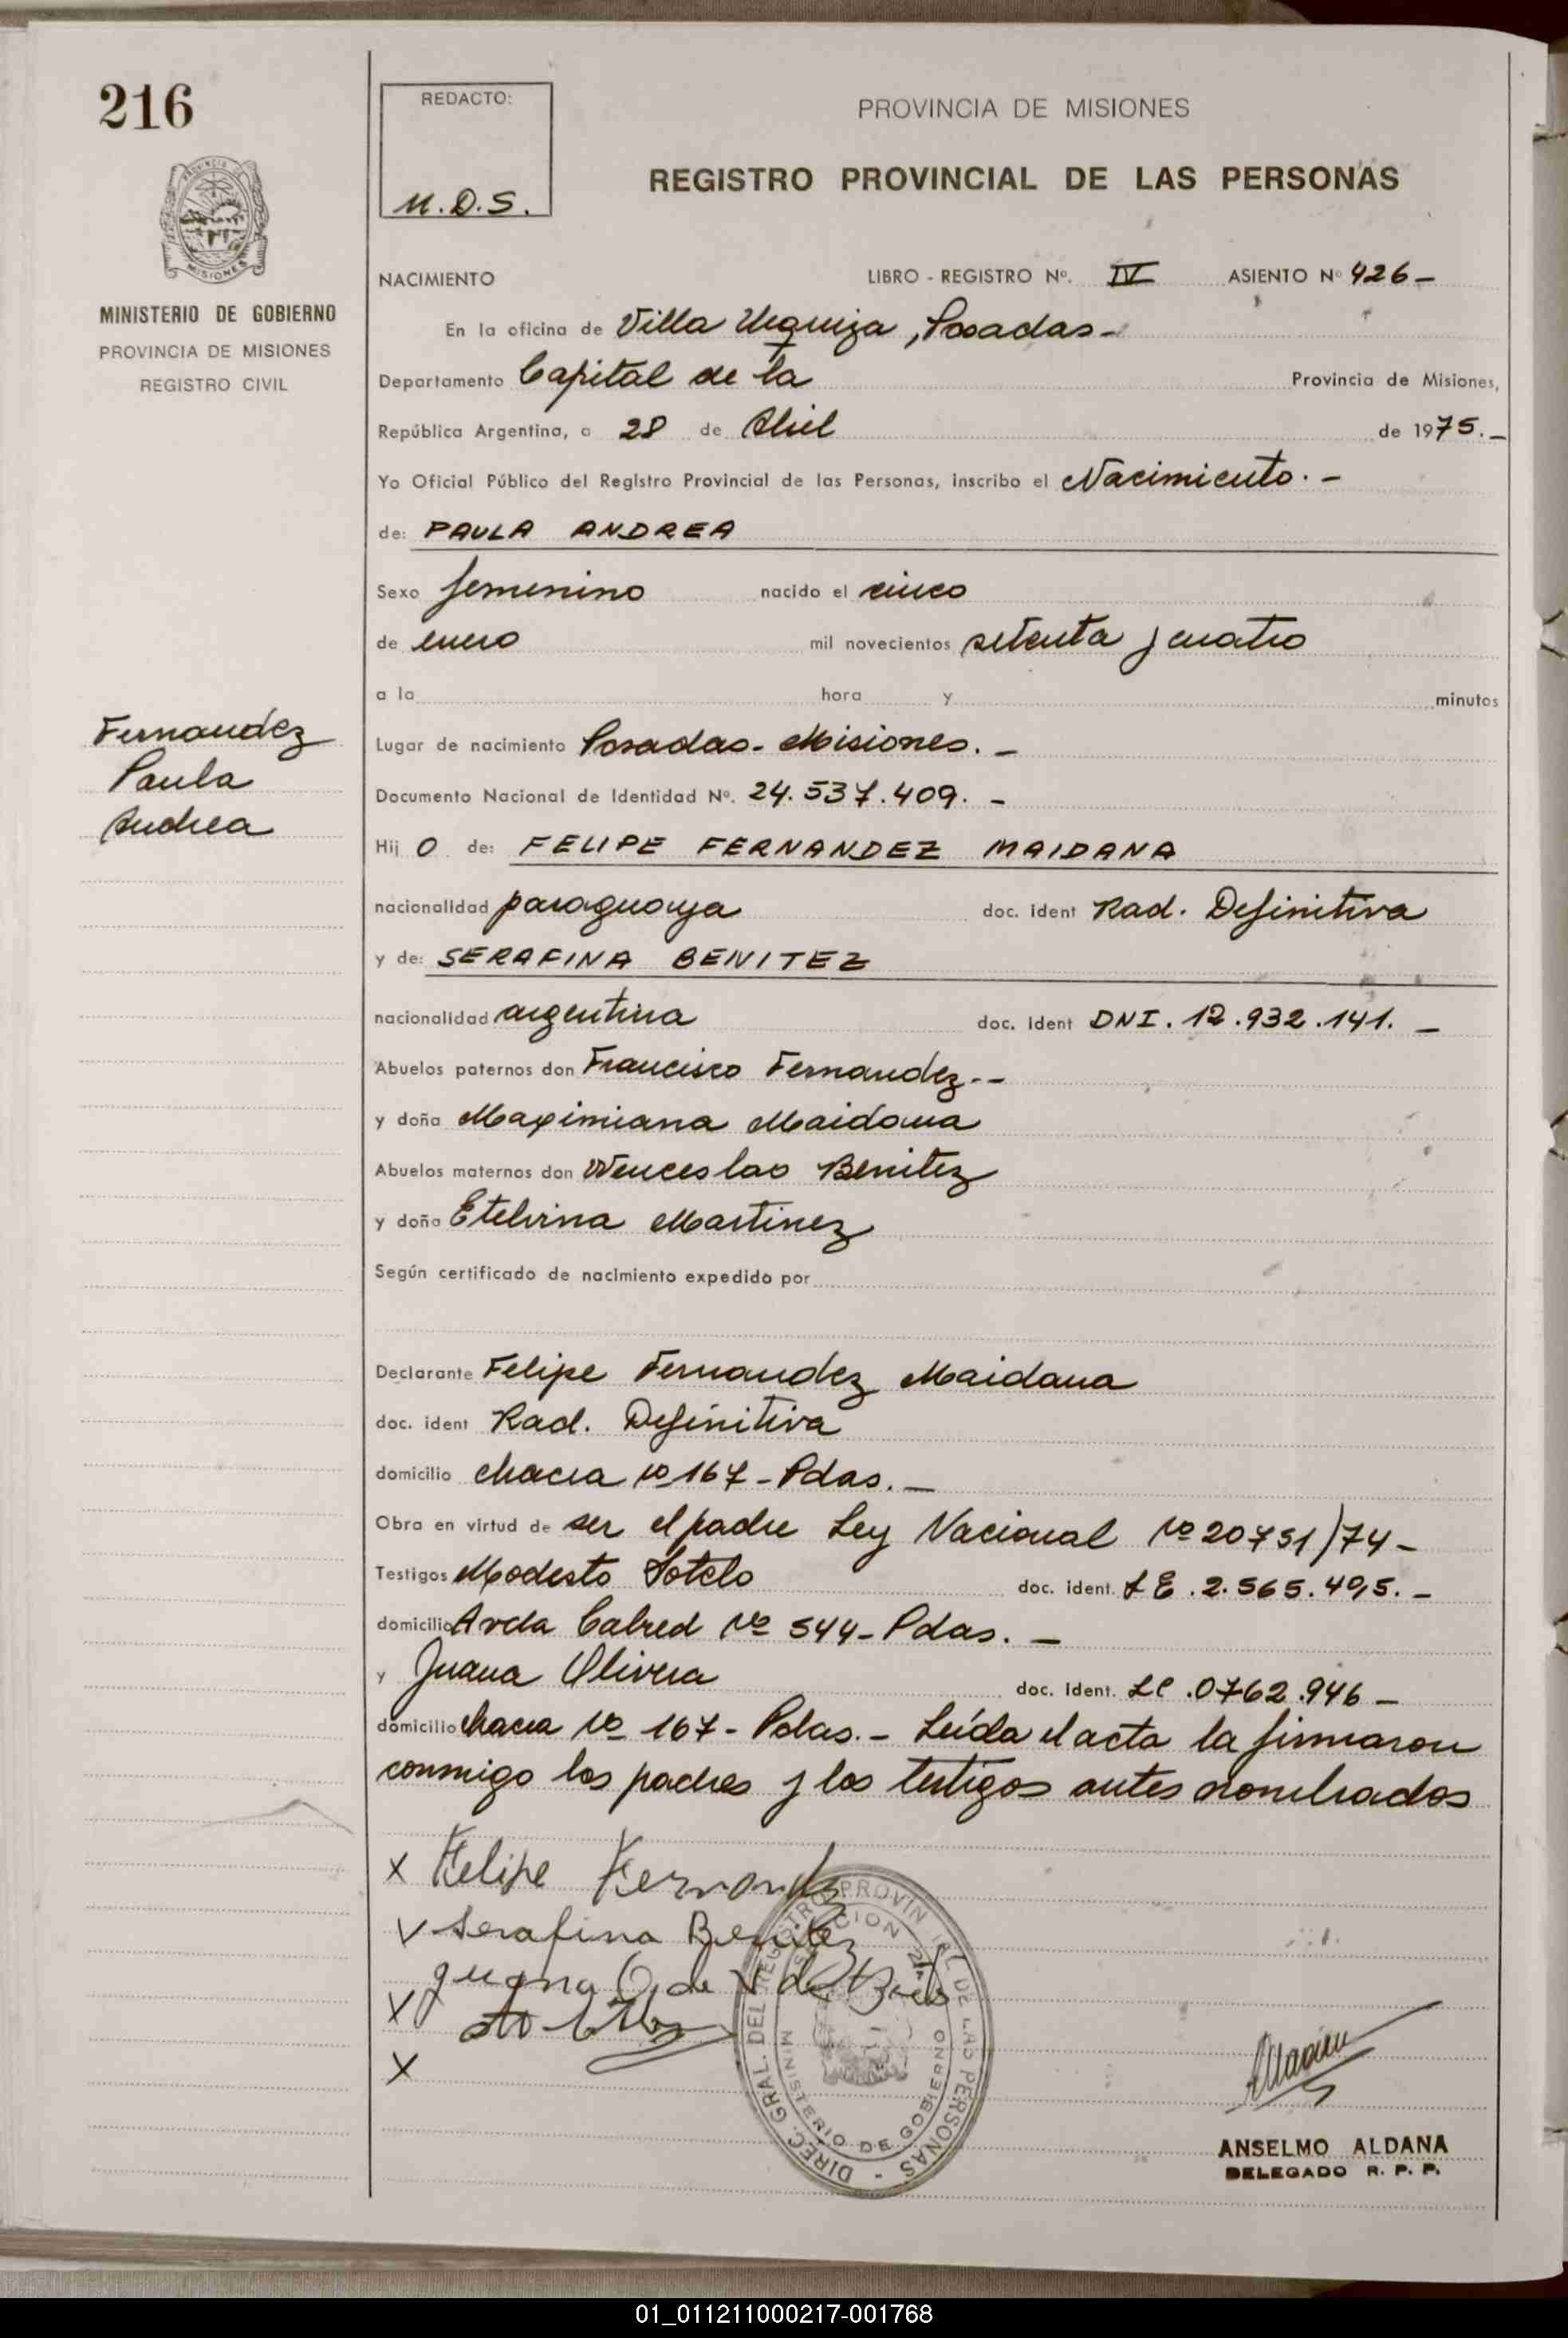 216
REDACTO:
M.D.S.
PROVINCIA DE MISIONES
REGISTRO PROVINCIAL DE LAS PERSONAS
PROVINCIA
MISIONES
MINISTERIO DE GOBIERNO
PROVINCIA DE MISIONES
REGISTRO CIVIL
NACIMIENTO LIBRO - REGISTRO Nº. IV ASIENTO Nº 426 -
En la oficina de Villa Urquiza, Posadas -
Departamento Capital de la Provincia de Misiones,
República Argentina, a 28 de Abril de 1975. -
Yo Oficial Público del Registro Provincial de las Personas, inscribo el Nacimiento. -
de: PAULA ANDREA
Sexo femenino nacido el cinco
de enero mil novecientos setenta y cuatro
a la hora y minutos
Fernandez
Paula
Andrea
Lugar de nacimiento Posadas - Misiones. -
Documento Nacional de Identidad Nº. 24.537.409. -
Hij O de: FELIPE FERNANDEZ MAIDANA
nacionalidad paraguaya doc. ident Rad. Definitiva
y de: SERAFINA BENITEZ
nacionalidad argentina doc. ident DNI. 12.932.141. -
Abuelos paternos don Francisco Fernandez. --
y doña Maximiana Maidana
Abuelos maternos don Wenceslao Benitez
y doña Etelvina Martinez
Según certificado de nacimiento expedido por
Declarante Felipe Fernandez Maidana
doc. ident Rad. Definitiva
domicilio chacra Nº 167 - Pdas. -
Obra en virtud de ser el padre Ley Nacional Nº 20751/74 -
Testigos Modesto Sotelo doc. ident. L E. 2.565.405. -
domicilio Avda Cabred Nº 544 - Pdas. -
y Juana Olivera doc. ident. LC. 0762.946 -
domicilio chacra Nº 167 - Pdas. - Leída el acta la firmaron
conmigo los padres y los testigos antes nombrados
x Felipe Fernandez
v Serafina Benitez
Juana O. de V de
X
X
DIREC. GRAL. DEL REGISTRO PROVINCIAL DE LAS PERSONAS -
MINISTERIO DE GOBIERNO
ANSELMO ALDANA
DELEGADO R. P. P.
01_011211000217-001768